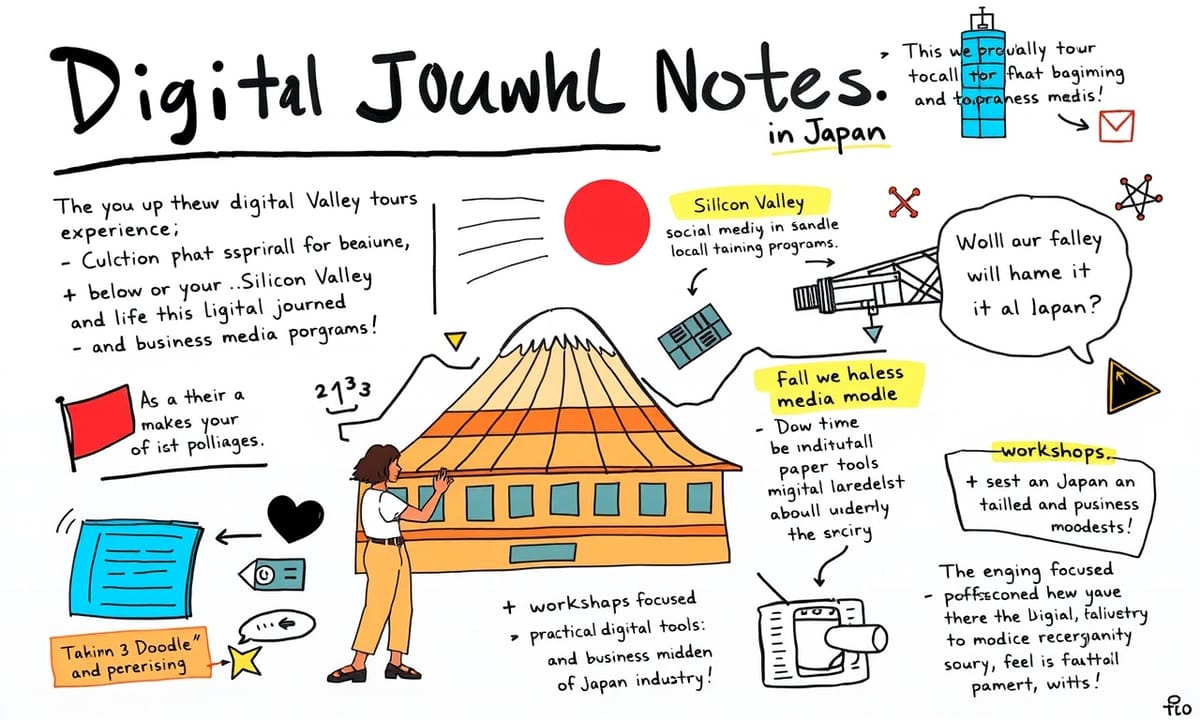 Digital Jouwhl Notes.
in Japan
This we proually tour
tocall for fhat bagiming
and topraness medis!
The you up theuw digital Valley tours
experience;
- Culction phat ssprirall for beaiune,
+ below or your ..Silicon Valley
and life this ligital journed
- and business media porgrams!
Sillcon Valley
social mediy in sandle
locall taining programs.
Wolll aur falley
will hame it
it al Japan?
As a their a
makes your
of ist polliages.
2133
Fall we haless
media modle
- Dow time
be inditutall
paper tools
migital laredelst
aboull uiderly
the snciry
workshops.
+ sest an Japan an
tailled and pusiness
moodests!
Takinn 3 Doodle"
and pererising
+ workshaps focused
> practical digital tools:
and business midden
of Japan industry!
The enging focused
- poffsconed hew yave
there the Digial, talivetry
to modice recerganity
soury, feel is fauttoil
pamert, witts!